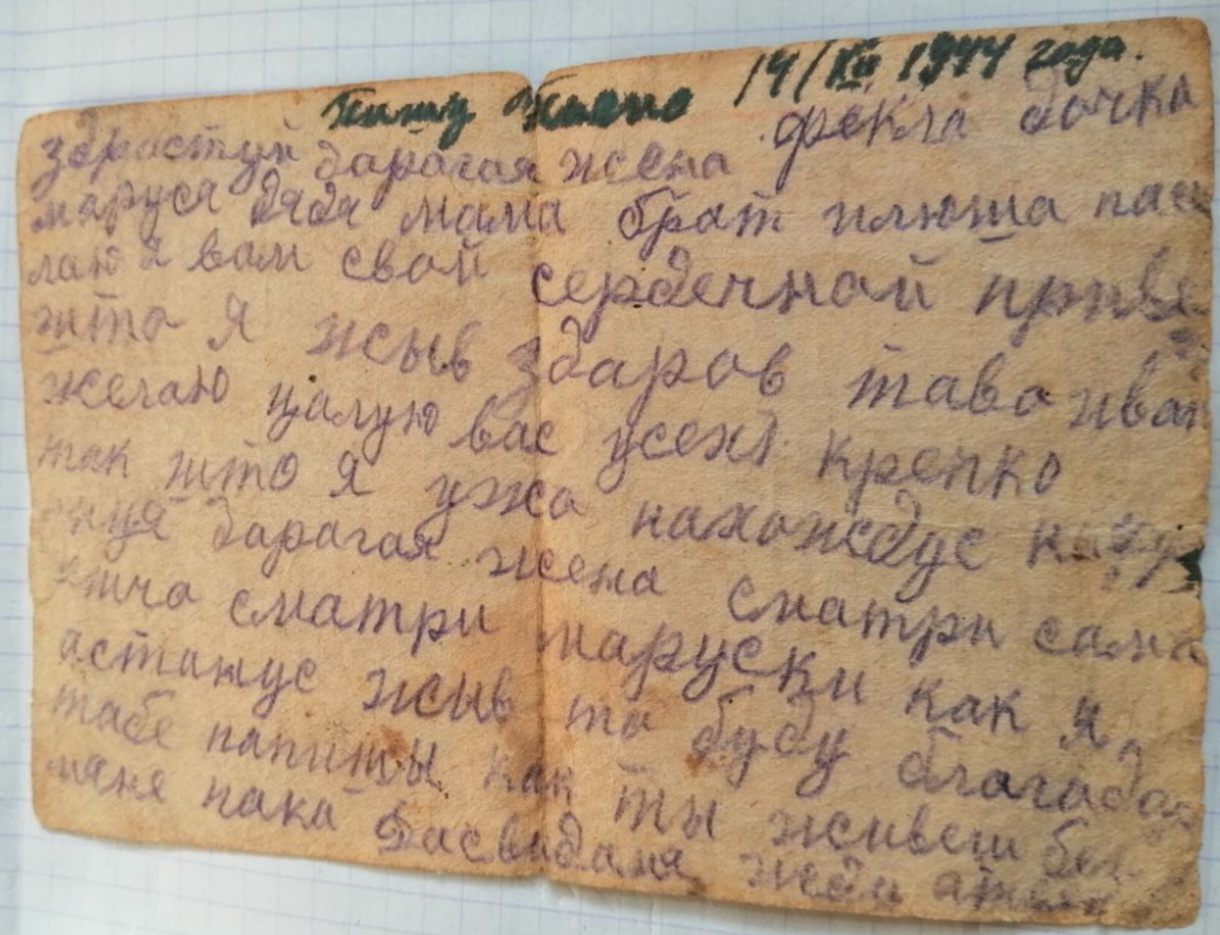 Пишу 14/XII 1944 года.
здрастуй дарагая жена фекла дочка
маруся дядя мама брат илюша пас
лаю я вам свой сердечной приве
што я жыв здаров таво и вам
желаю цалую вас усех крепко
так што я ужо нахождус
дарагая жена сматри сама
сматри маруски как я
астанус жыв то буду благода
табе напишы как ты живеш без
мяне пака Дасвиданя жду